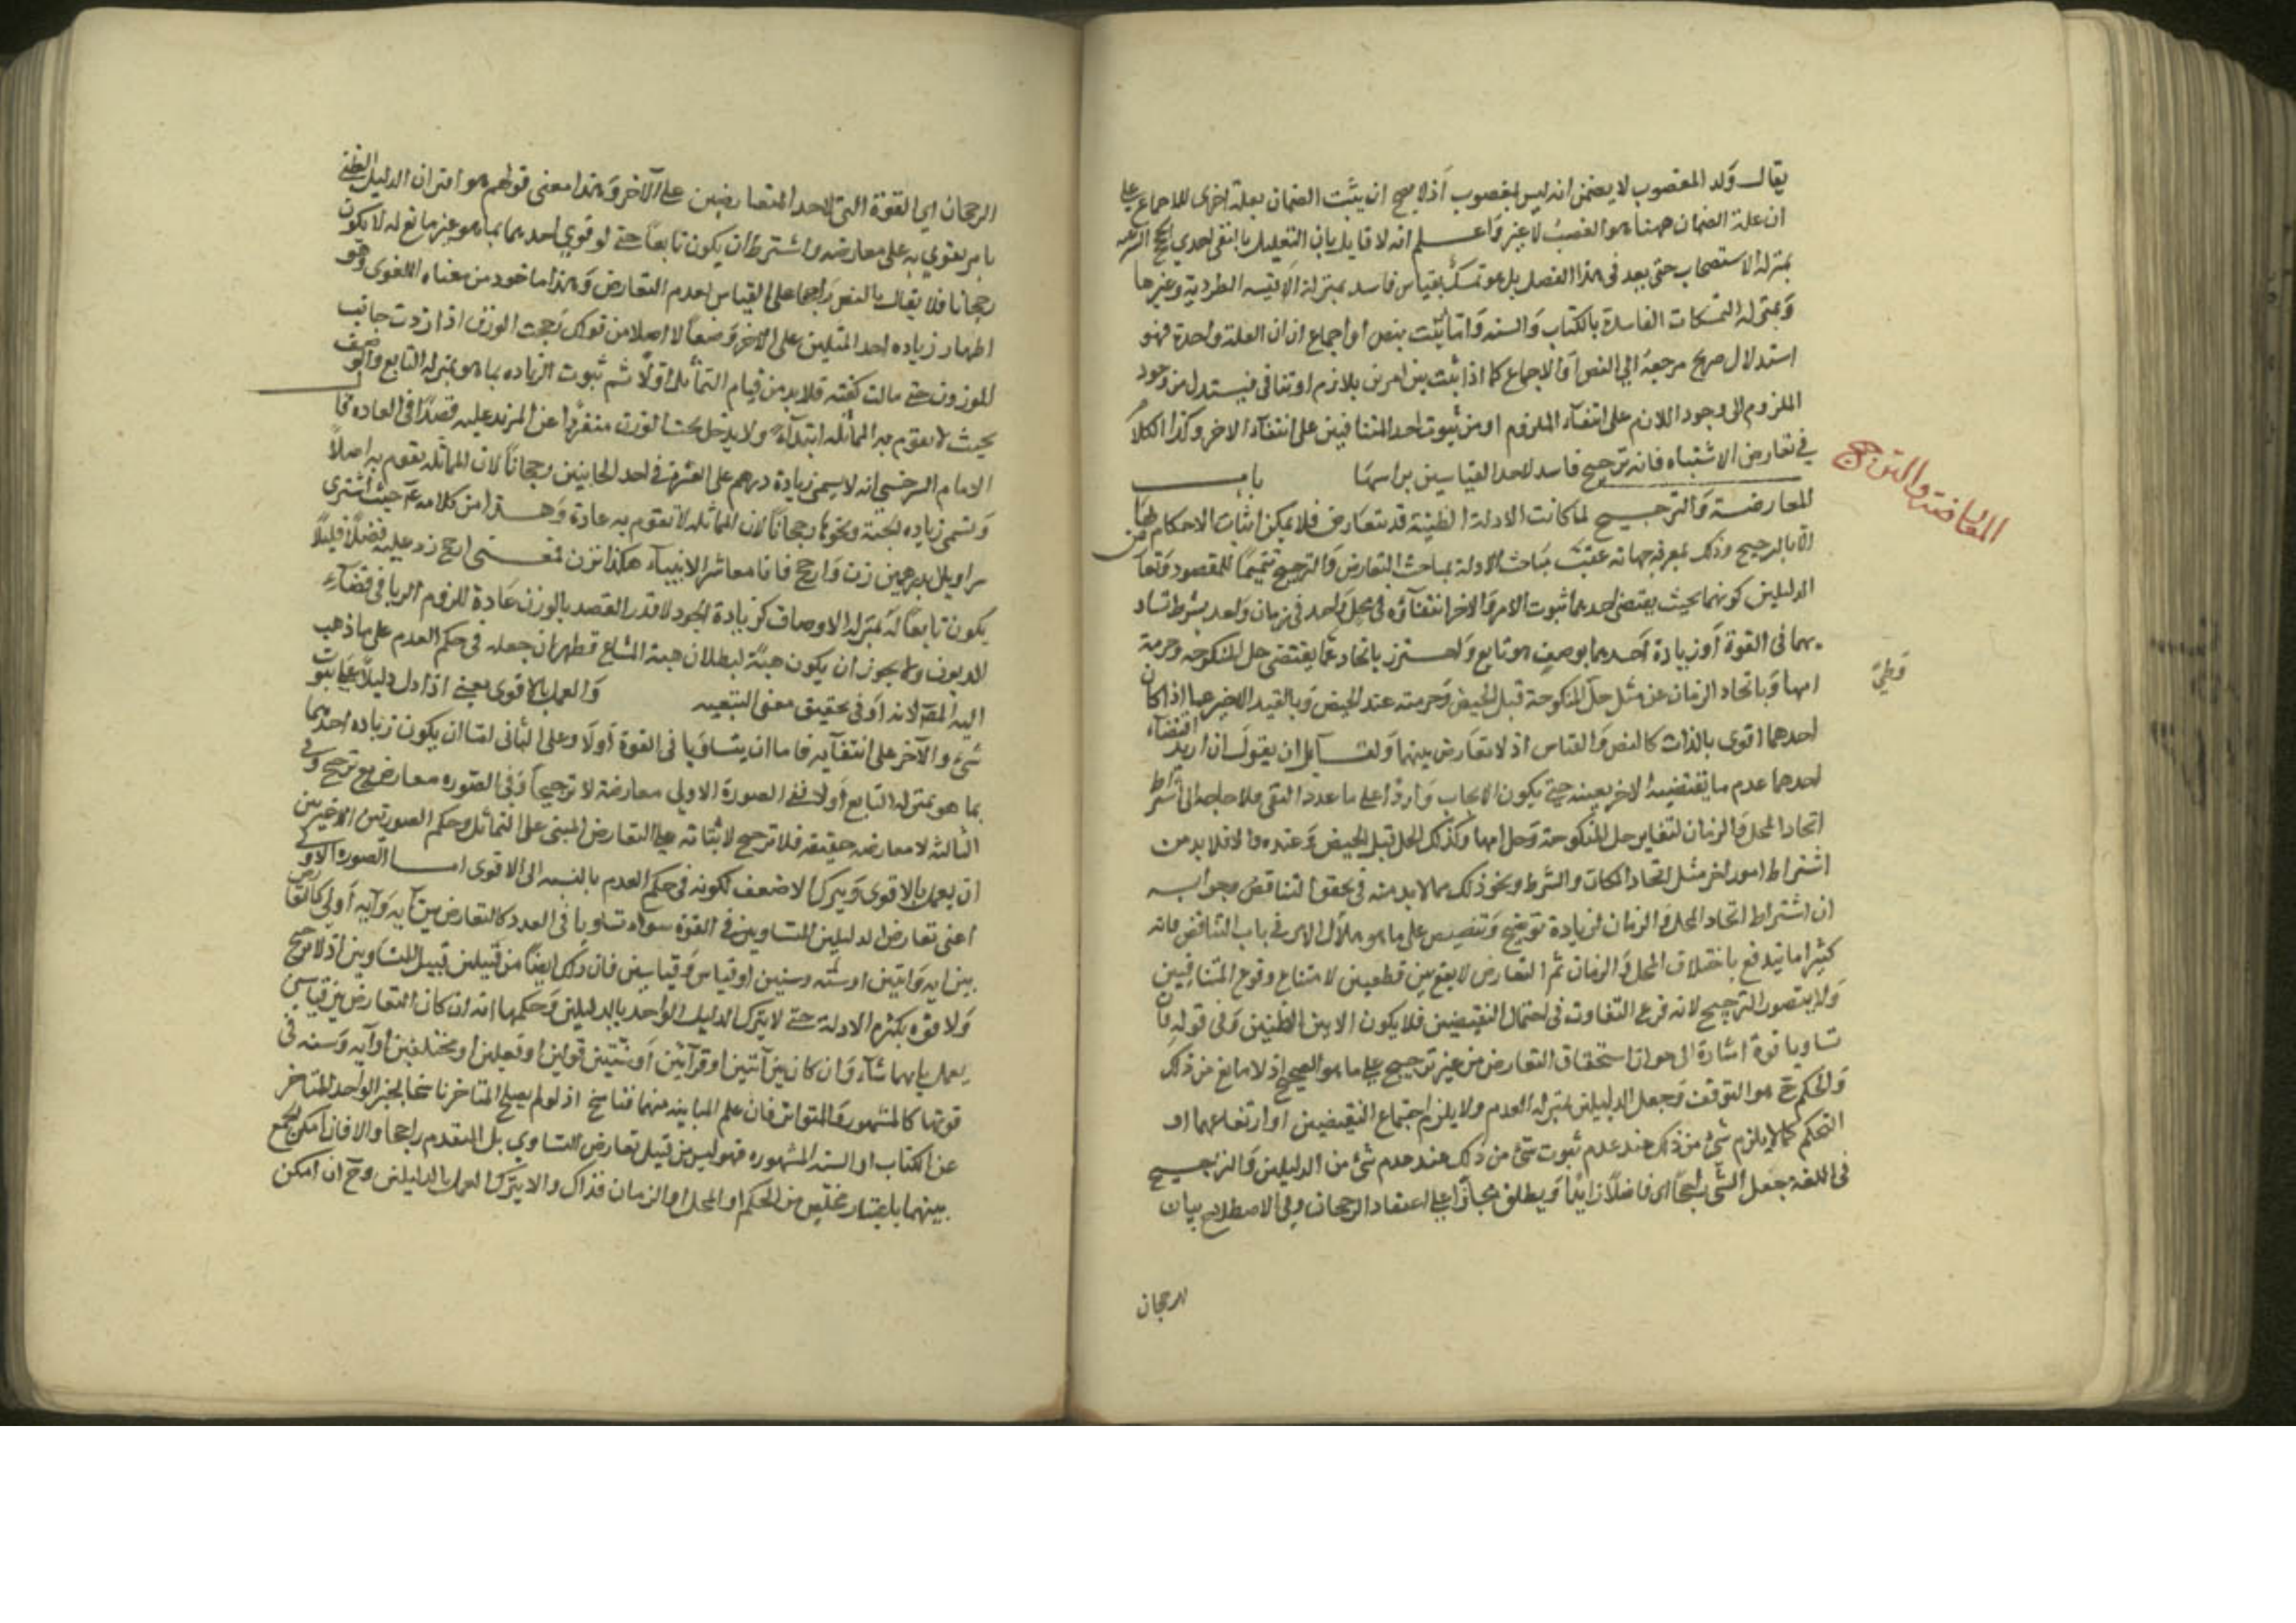 يقال ولد المغصوب لا يضمن انه ليس بمغصوب اذ لا يصح ان يثبت الضمان بعلة اخرى للاجماع على
ان علة الضمان ههنا هو الغصب لا غير واعلم انه لا قايل بان التعليل بالنفي احدي الحجج الشرعيه
بمنزلة الاستصحاب حتى يعد في هذا الفصل بل هو تمسك بقياس فاسد بمنزلة الاقيسه الطردية وغيرها
وبمنزلة التمسكات الفاسدة بالكتاب والسنه واما يثبت بنص او اجماع ان ان العلة واحدة فهو
استدلال صريح مرجعه الي النص او الاجماع كما اذا ثبت بين امرين بلازم او تنافى فيستدل من وجود
الملزوم الى وجود اللازم على انتفاء الملزوم او من ثبوت احد المتنافيين على انتفاء الاخر وكذا الكلام
في تعارض الاشتباه فانه ترجيح فاسد لاحد القياسين براسها باب
المعارضة والترجيح
المعارضة والترجيح لما كانت الادلة الظنية قد تتعارض فلا يمكن اثبات الاحكام بها
الا بالترجيح وذلك بمعرفة جهاته عقب مباحث الادلة بمباحث التعارض والترجيح تتميما للمقصود وتعارض
الدليلين كونهما بحيث يقتضي احدهما ثبوت الامر والاخر انتفاؤه في محل واحد في زمان واحد بشرط تساو
يهما في القوة او زيادة احدهما بوصف هو تابع واحترز باتحاد عما يقتضي حل المنكوحه وحرمة
امها وباتحاد الزمان عن مثل حل المنكوحة قبل الحيض وحرمته عند الحيض وبالقيد الاخير عما اذا كان
احدهما اقوى بالذات كالنص والقياس اذ لا تعارض بينهما ولقايل ان يقول ان اريد اقتضاء
احدهما عدم ما يقتضيه الاخر بعينه حتى يكون الايجاب واردا على ما عدد النفي فلا حاجه الى اشتراط
اتحاد المحل والزمان لتغاير حل المنكوحة وحل امها وكذلك الحل قبل الحيض وعنده والا فلا بد من
اشتراط امور اخر مثل اتحاد المكان والشرط ونحو ذلك مما لا بد منه في تحقق التناقض وجوابه
ان اشتراط اتحاد المحل والزمان لزيادة توضيح وتنصيص على ما هو ملاك الامر في باب التناقض فانه
كثيرا ما يندفع باختلاف المحل والزمان ثم التعارض لا يقع بين قطعيين لامتناع وقوع المتنافيين
ولا يتصور الترجيح لانه فرع التفاوت في احتمال النقيضين فلا يكون الا بين الظنيين وفي قوله فان
تساويا قوة اشارة الى جواز استحقاق التعارض من غير ترجيح على ما هو الصحيح اذ لا مانع من ذلك
والحكم ح هو التوقف وجعل الدليلين بمنزلة العدم ولا يلزم اجتماع النقيضين او ارتفاعهما او
التحكم كما لا يلزم شئ من ذلك عند عدم ثبوت شئ من ذلك عند عدم شئ من الدليلين والترجيح
في اللغه جعل الشئ راجحا اي فاضلا زايدا ويطلق مجازا على اعتقاد الرجحان وفي الاصطلاح بيان
الرجحان
الرجحان اي القوة التي لاحد المتعارضين على الآخر وهذا معنى قولهم هو اقتران الدليل الظني
بامر يقوي به على معارضه واشترط ان يكون تابعا حتى لو قوي احدهما بما هو غير مانع له لا يكون
رجحانا فلا يقال بالنص راجحا على القياس لعدم التعارض وهذا ماخوذ من معناه اللغوي وهو
اظهار زياده احد المثلين على الاخر وصفا لا اصلا من قولك رجحت الوزن اذا زدت جانب
الموزون حتى مالت كفته فلا بد من قيام التماثل اولا ثم ثبوت الزياده بما هو بمنزلة التابع والوصف
بحيث لا يقوم به المماثله ابتداء ولا يدخل تحت الوزن منفردا عن المزيد عليه قصدا في العاده
الامام السرخسي انه لا يسمى زيادة درهم على العشرة في احد الجانبين رجحانا لان المماثله يقوم به اصلا
وتسمى زياده الحبة ونحوها رجحانا لان المماثله لا يقوم به عادة وهذا من كلامه حيث اشترى
سراويل بدرهمين زن وارجح فانا معاشر الانبياء هكذا نزن فمعنى ارجح زد عليه فضلا قليلا
يكون تابعا له بمنزلة الاوصاف كزيادة الجوده لا قدر القصد بالوزن عادة للزوم الربا في قضاء
الديون ولا يجوز ان يكون هبة لبطلان هبة المشاع فظهر ان جعله في حكم العدم على ما ذهب
اليه المقر لانه اوفى تحقيق معنى التبعيه والعمل بالاقوى يعني اذا دل دليل على ثبوت
شئ والآخر على انتفايه فاما ان يتساويا في القوة اولا وعلى الثاني لنا ان يكون زياده احدهما
بما هو بمنزلة التابع اولا ففي الصورة الاولي معارضة لا ترجيحا وفي الصوره معارض مع ترجيح وفي
الثالثه لا معارضه حقيقه فلا ترجيح لابتنائه على التعارض المبنى على التماثل وحكم الصورتين الاخيرتين
ان يعمل بالاقوى ويترك الاضعف لكونه في حكم العدم بالنسبه الى الاقوى اما الصوره الاولى
اعني تعارض الدليلين المتساويين في القوة سواء تساويا في العدد كالتعارض بين آيه وآيه او لا كالتعارض
بين ايه وايتين او سنه وسنتين او قياس وقياسين فان ذلك ايضا من قبيل قبيل المتساويين اذ لا ترجح
ولا قوه بكثرة الادلة حتى لا يترك الدليل الواحد بالدليلين وحكمها انه ان كان التعارض بين قياسين
يعمل بايهما شاء وان كان بين آيتين او قرآتين او سنتين قولين او فعلين او مختلفين او آيه وسنه في
قوتها كالمشهور والمتواتر فان علم المباينه بينهما فناسخ اذ لو لم يصلح المتاخر ناسخا كخبر الواحد المتاخر
عن الكتاب او السنه المشهوره فهو ليس من قبيل تعارض التساوي بل المتقدم راجح والا فان امكن الجمع
بينهما باعتبار مخلص من الحكم او المحل او الزمان فذاك والا يترك العمل بالدليلين وح ان امكن